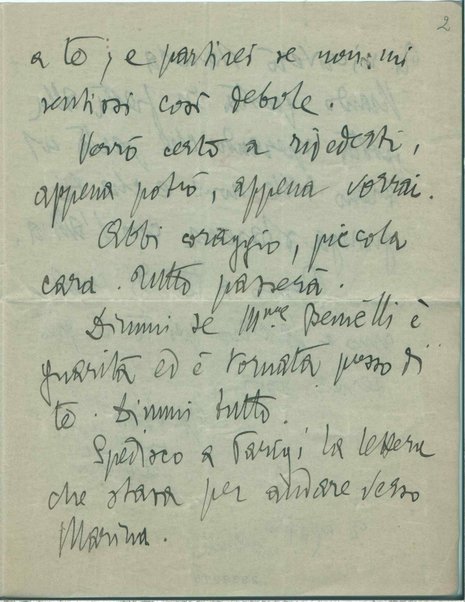 2
a te; e partirei se non mi
sentissi così debole.
Verrò certo a rivederti,
appena potrò, appena vorrai.
Abbi coraggio, piccola
cara. Tutto passerà.
Dimmi se Mme Benelli è
guarita ed è tornata presso di
te. Dimmi tutto.
Spedisco a Parigi la lettera
che stava per andare verso
Marina.